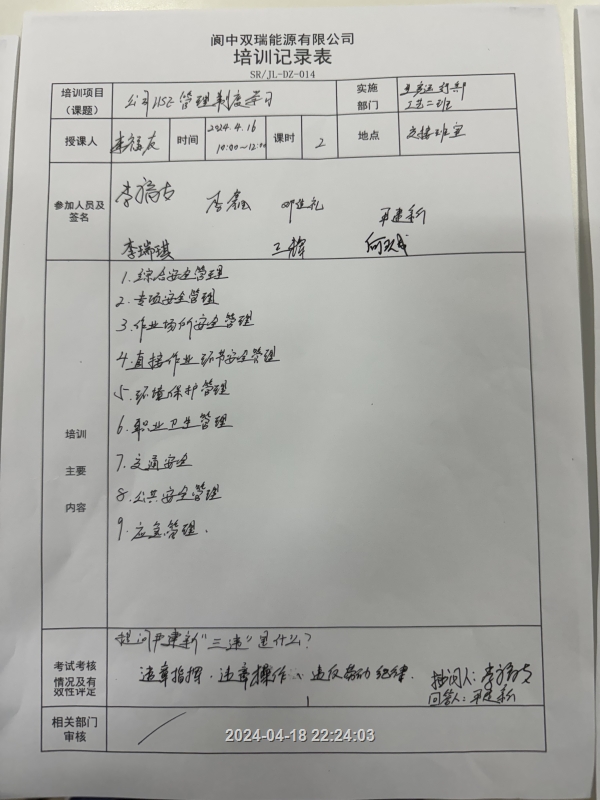 阆中双瑞能源有限公司
培训记录表
SR/JL-DZ-014
培训项目
（课题）
公司HSE管理制度学习
实施
部门
生产运行部
工艺二班
授课人
李福友
时间
2024.4.16
10:00~12:00
课时
2
地点
交接班室
参加人员及
签名
李福友
邓进礼
尹建新
李瑞琪
王辉
培训
主要
内容
1.综合安全管理
2.专项安全管理
3.作业场所安全管理
4.直接作业环节安全管理
5.环境保护管理
6.职业卫生管理
7.交通安全
8.公共安全管理
9.应急管理.
考试考核
情况及有
效性评定
提问尹建新"三违"是什么?
违章指挥、违章操作、违反劳动纪律.
抽问人:李福友
回答人:尹建新
相关部门
审核
2024-04-18 22:24:03